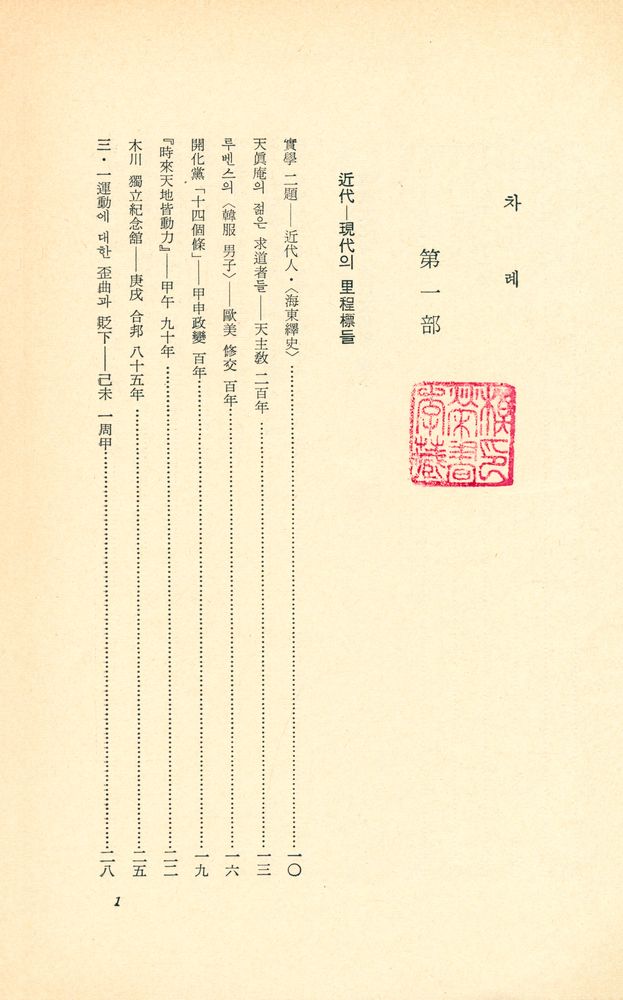 차례
第一部
近代—現代의 里程標들
實學 二題——近代人·〈海東繹史〉……一〇
天眞庵의 젊은 求道者들——天主敎 二百年……一三
루벤스의 〈韓服 男子〉——歐美 修交 百年……一六
開化黨「十四個條」——甲申政變 百年……一九
『時來天地皆動力』——甲午 九十年……二二
木川 獨立紀念館——庚戌 合邦 八十五年……二五
三·一運動에 대한 歪曲과 貶下——己未 一周甲……二八
1